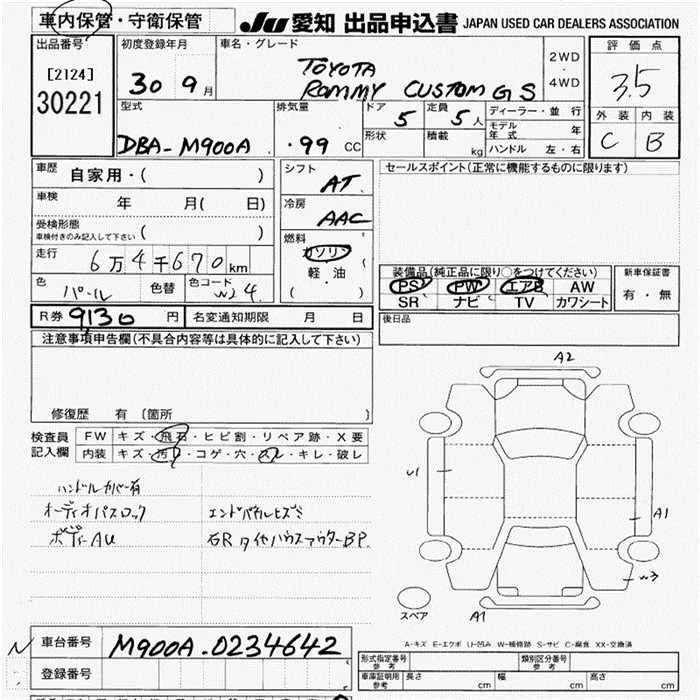 車内保管・守衛保管
JU 愛知 出品申込書 JAPAN USED CAR DEALERS ASSOCIATION
出品番号
[2124]
30221
初度登録年月
30 9月
車名・グレード
TOYOTA
ROMMY CUSTOM G S
2WD
・
4WD
評価点
3.5
外装 内装
C B
型式
DBA-M900A
排気量
.99 CC
ドア
5
形状
定員
5人
積載
kg
ディーラー・並行
モデル年式 年
ハンドル 左・右
車歴
自家用・( )
車検
年 月( 日)
受検形態
車検付きのみ記入して下さい ( )
走行
6万4千670km
色
パール
色替
色コード
W24
シフト
AT
冷房
AAC
燃料
ガソリン
軽油
( )
セールスポイント(正常に機能するものに限ります)
装備品(純正品に限り○をつけてください)
PS PW エアB AW
SR ナビ TV カワシート
新車保証書
有・無
後日品
R券 9130 円 名変通知期限 月 日
注意事項申告欄(不具合内容等は具体的に記入して下さい)
修復歴 有 [箇所 ]
検査員記入欄
FW キズ・飛石・ヒビ割・リペア跡・X要
内装 キズ・汚れ・コゲ・穴・スレ・キレ・破レ
ハンドルカバー有
オーディオパスロック
ボディーAU
エンドパネルヒズミ
右Rタイヤハウスアウター BP.
A2
U1
A1
W3
A1
スペア
A-キズ E-エクボ U-凹み W-補修跡 S-サビ C-腐食 XX-交換済
N
車台番号 M900A-0234642
登録番号
形式指定番号
参考
類別区分番号
参考
車庫証明用
参考
長さ cm 幅 cm 高さ cm